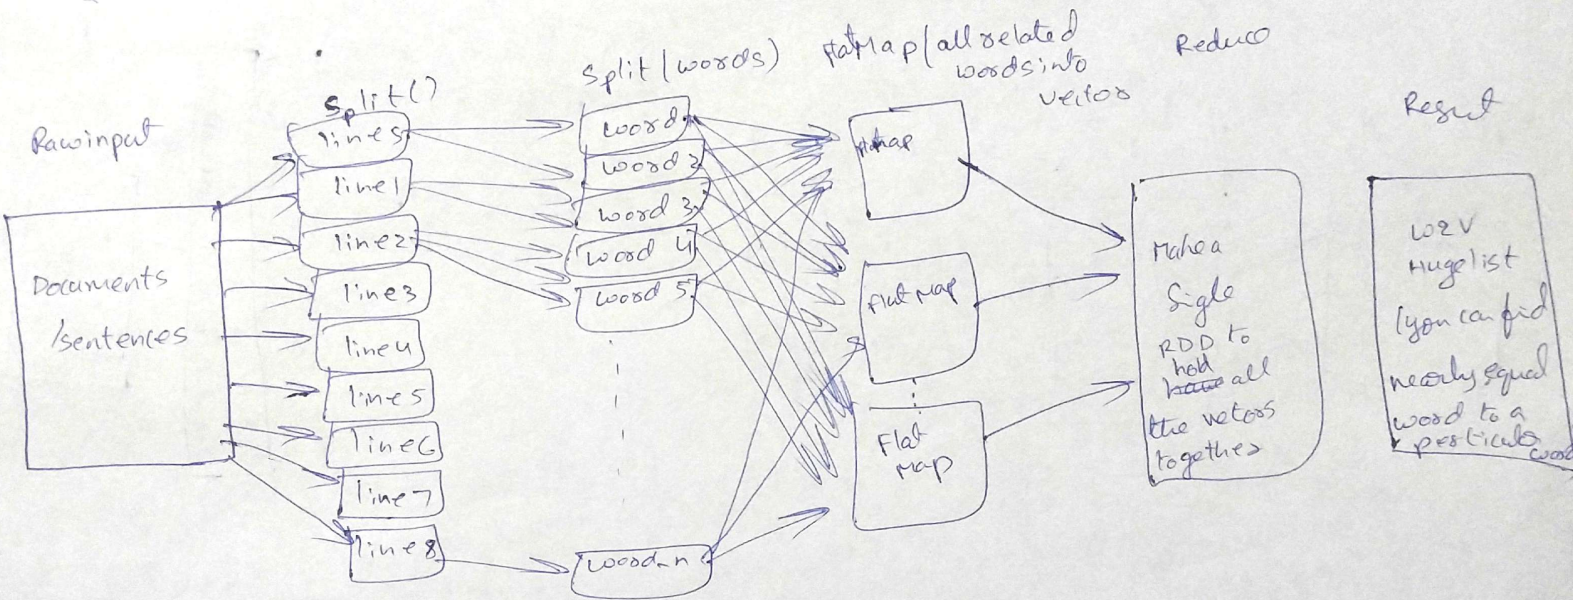 Rawinput
Documents
/sentences
Split()
lines
line1
line2
line3
line4
line5
line6
line7
line8
Split(words)
word
word 2
word 3
word 4
word 5
word_n
FlatMap(all related
words into
vector
FlatMap
Flat
Map
Reduce
Make a
Sigle
RDD to
hold
have all
the vetors
together
Result
W2V
Hugelist
(you can find
nearly equal
word to a
perticular word